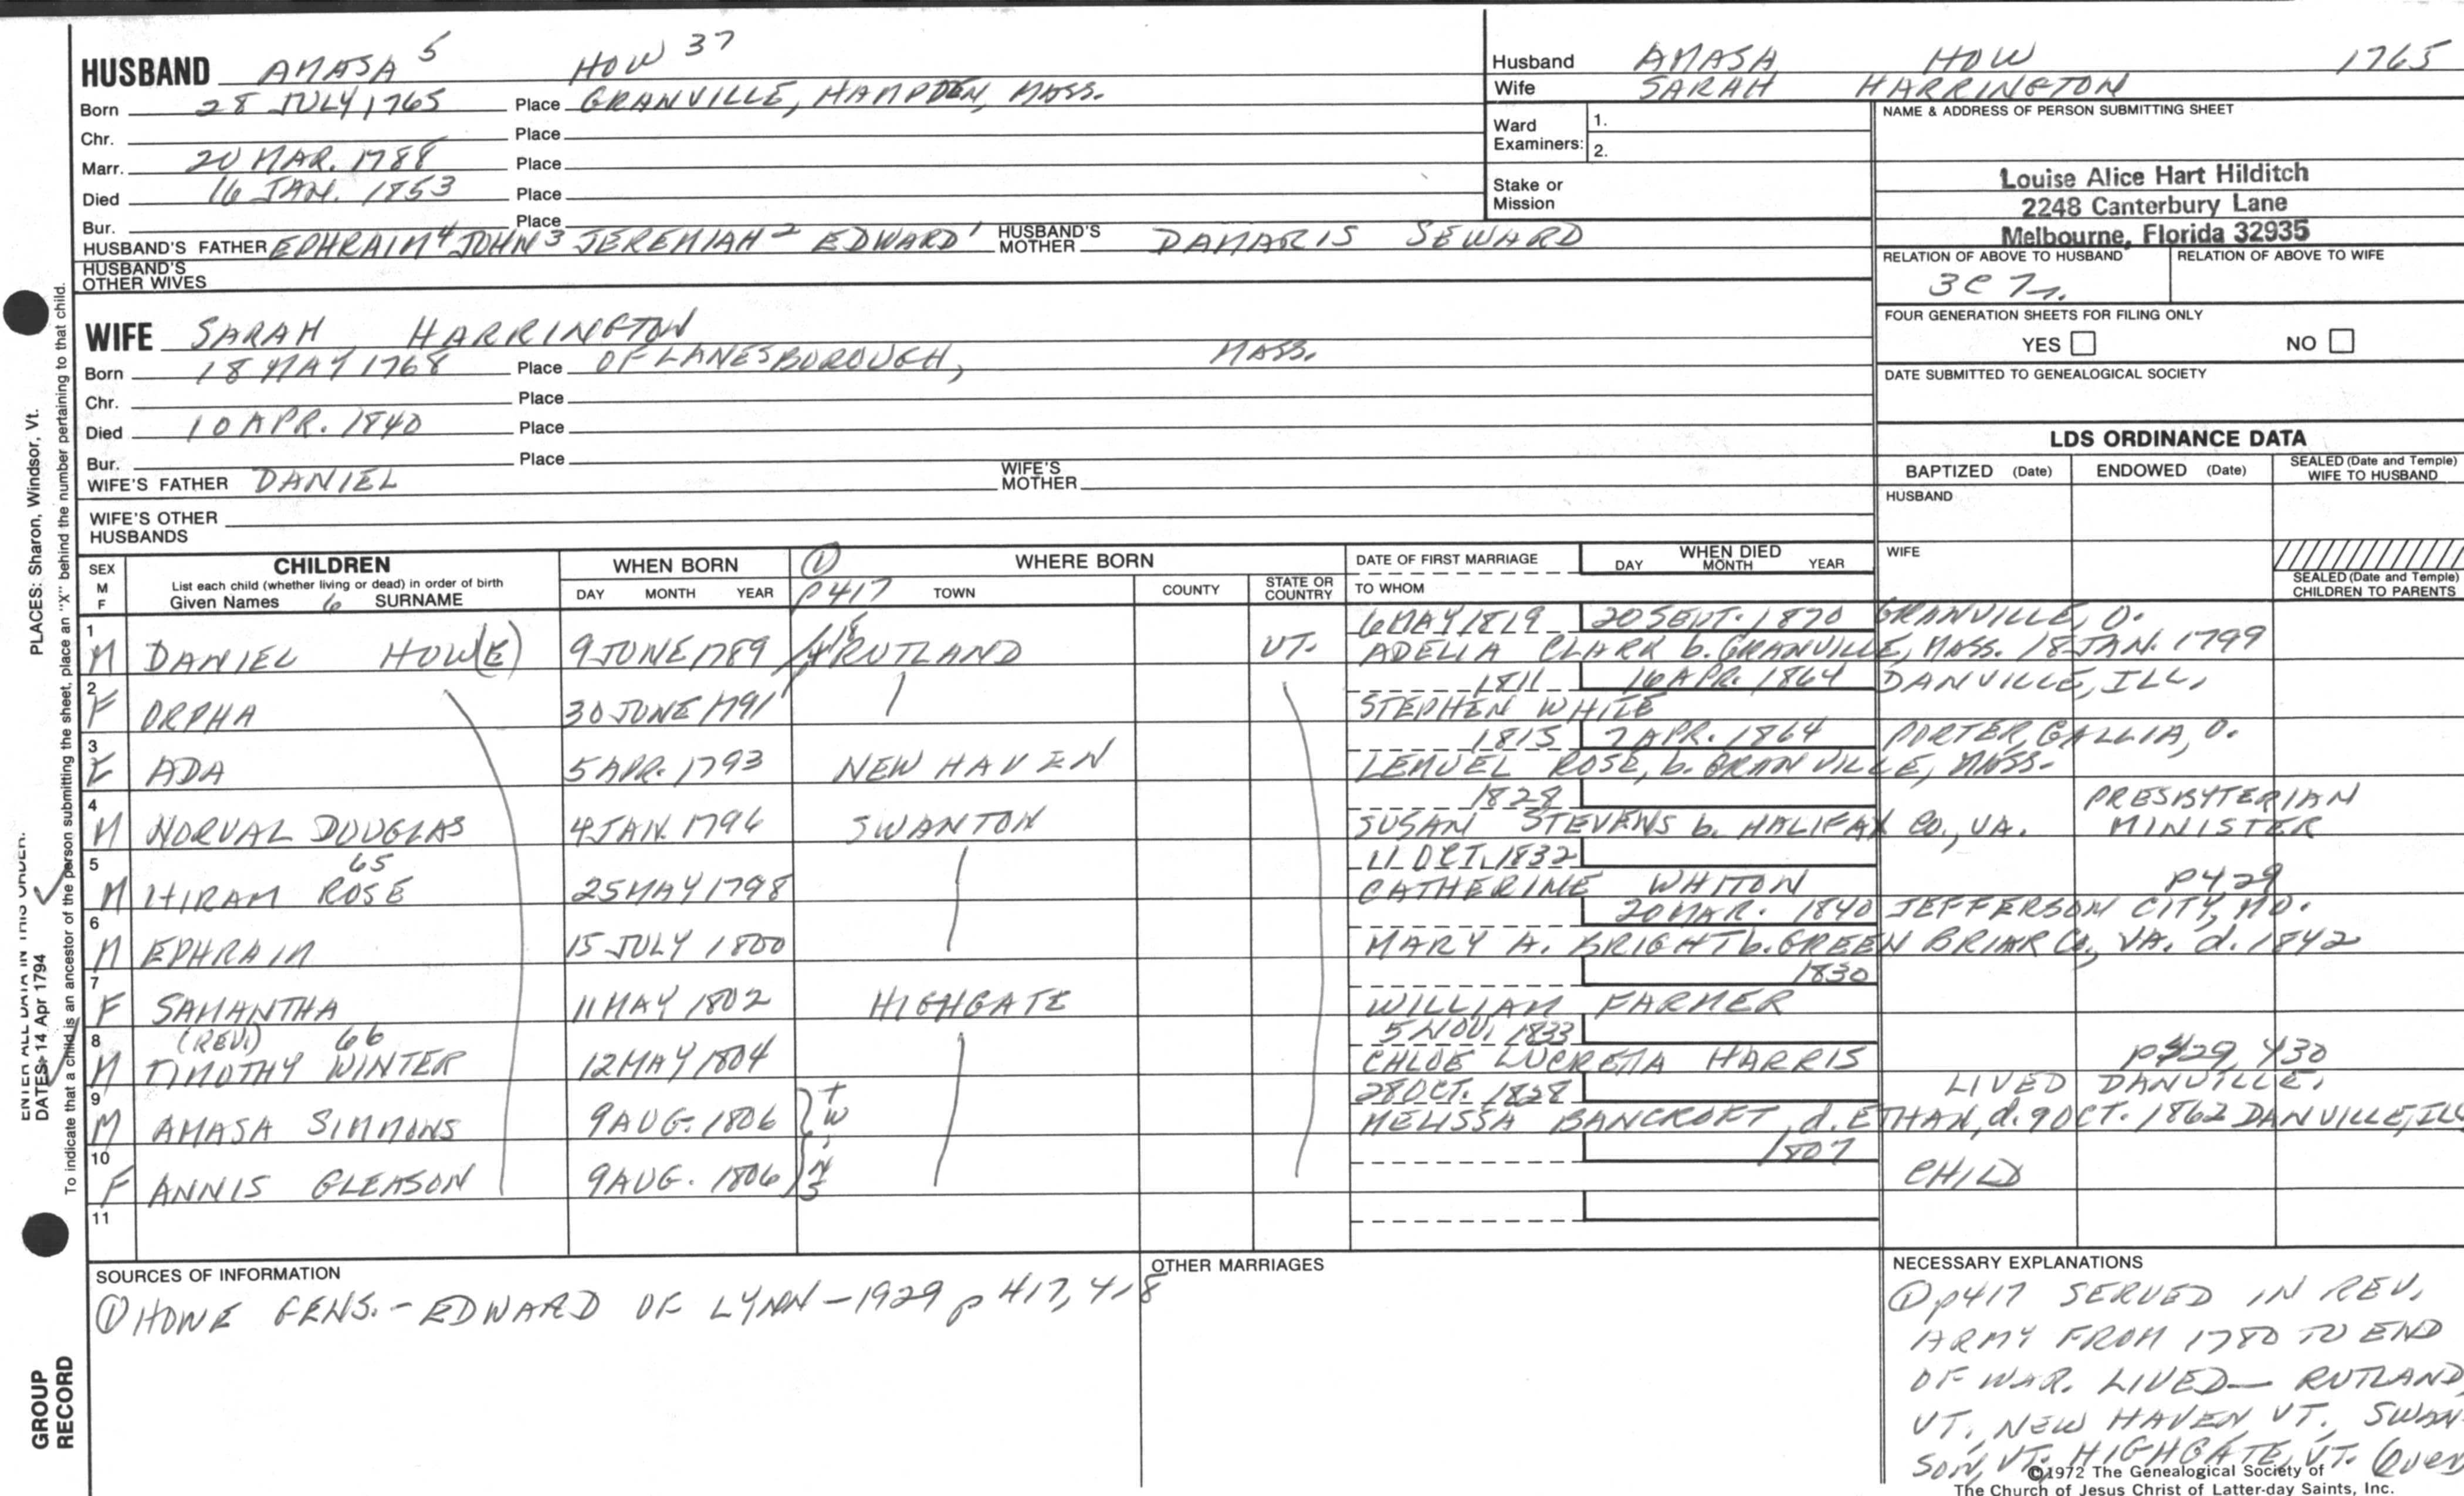 HUSBAND AMASA 5 HOW 37
Born 28 JULY, 1765 Place GRANVILLE, HAMPDEN, MASS.
Chr. Place
Marr. 20 MAR. 1788 Place
Died 16 JAN. 1853 Place
Bur. Place
HUSBAND'S FATHER EPHRAIM 4 JOHN 3 JEREMIAH 2 EDWARD 1 HUSBAND'S MOTHER DAMARIS SEWARD
HUSBAND'S OTHER WIVES
Husband AMASA HOW 1765
Wife SARAH HARRINGTON
Ward Examiners: 1.
2.
Stake or Mission
NAME & ADDRESS OF PERSON SUBMITTING SHEET
Louise Alice Hart Hilditch
2248 Canterbury Lane
Melbourne, Florida 32935
RELATION OF ABOVE TO HUSBAND RELATION OF ABOVE TO WIFE
3C 7r.
FOUR GENERATION SHEETS FOR FILING ONLY
YES NO
DATE SUBMITTED TO GENEALOGICAL SOCIETY
WIFE SARAH HARRINGTON
Born 18 MAY 1768 Place OF LANESBOROUGH, MASS.
Chr. Place
Died 10 APR. 1840 Place
Bur. Place
WIFE'S FATHER DANIEL WIFE'S MOTHER
WIFE'S OTHER HUSBANDS
LDS ORDINANCE DATA
BAPTIZED (Date) ENDOWED (Date) SEALED (Date and Temple) WIFE TO HUSBAND
HUSBAND
WIFE
SEALED (Date and Temple) CHILDREN TO PARENTS
SEX M F
CHILDREN
List each child (whether living or dead) in order of birth
Given Names 6 SURNAME
WHEN BORN
DAY MONTH YEAR
① p417
WHERE BORN
TOWN COUNTY STATE OR COUNTRY
DATE OF FIRST MARRIAGE
TO WHOM
WHEN DIED
DAY MONTH YEAR
1 6 MAY 1819 20 SEPT. 1870 GRANVILLE, O.
M DANIEL HOW(E) 9 JUNE 1789 RUTLAND VT. ADELIA CLARK b. GRANVILLE, MASS. 18 JAN. 1799
2 1811 16 APR. 1864 DANVILLE, ILL.
F ORPHA 30 JUNE 1791 STEPHEN WHITE
3 1815 7 APR. 1864 PORTER, GALLIA, O.
F ADA 5 APR. 1793 NEW HAVEN LEMUEL ROSE, b. GRANVILLE, MASS.
4 1828 PRESBYTERIAN
M NORVAL DOUGLAS 4 JAN. 1796 SWANTON SUSAN STEVENS b. HALIFAX CO., VA. MINISTER
5 65 11 OCT. 1832
M HIRAM ROSE 25 MAY 1798 CATHERINE WHITON p429
6 20 MAR. 1840 JEFFERSON CITY, MO.
M EPHRAIM 15 JULY 1800 MARY A. BRIGHT b. GREEN BRIAR CO., VA. d. 1842
7 1830
F SAMANTHA 11 MAY 1802 HIGHGATE WILLIAM FARMER
8 (REV.) 66 5 NOV. 1833
M TIMOTHY WINTER 12 MAY 1804 CHLOE LUCRETIA HARRIS p429, 430
9 28 OCT. 1828 LIVED DANVILLE,
M AMASA SIMMONS 9 AUG. 1806 TWINS MELISSA BANCROFT, d. ETHAN, d. 9 OCT. 1862 DANVILLE, ILL
10 1807
F ANNIS GLEASON 9 AUG. 1806 CHILD
11
SOURCES OF INFORMATION
① HOWE GENS. - EDWARD OF LYNN - 1929 p 417, 418
OTHER MARRIAGES
NECESSARY EXPLANATIONS
① p417 SERVED IN REV.
ARMY FROM 1780 TO END
OF WAR. LIVED - RUTLAND,
VT., NEW HAVEN, VT., SWAN-
SON, VT. HIGHGATE, VT. (over
©1972 The Genealogical Society of
The Church of Jesus Christ of Latter-day Saints, Inc.
ENTER ALL DATA IN THIS ORDER:
DATES: 14 Apr 1794
PLACES: Sharon, Windsor, Vt.
To indicate that a child is an ancestor of the person submitting the sheet, place an "X" behind the number pertaining to that child.
GROUP
RECORD